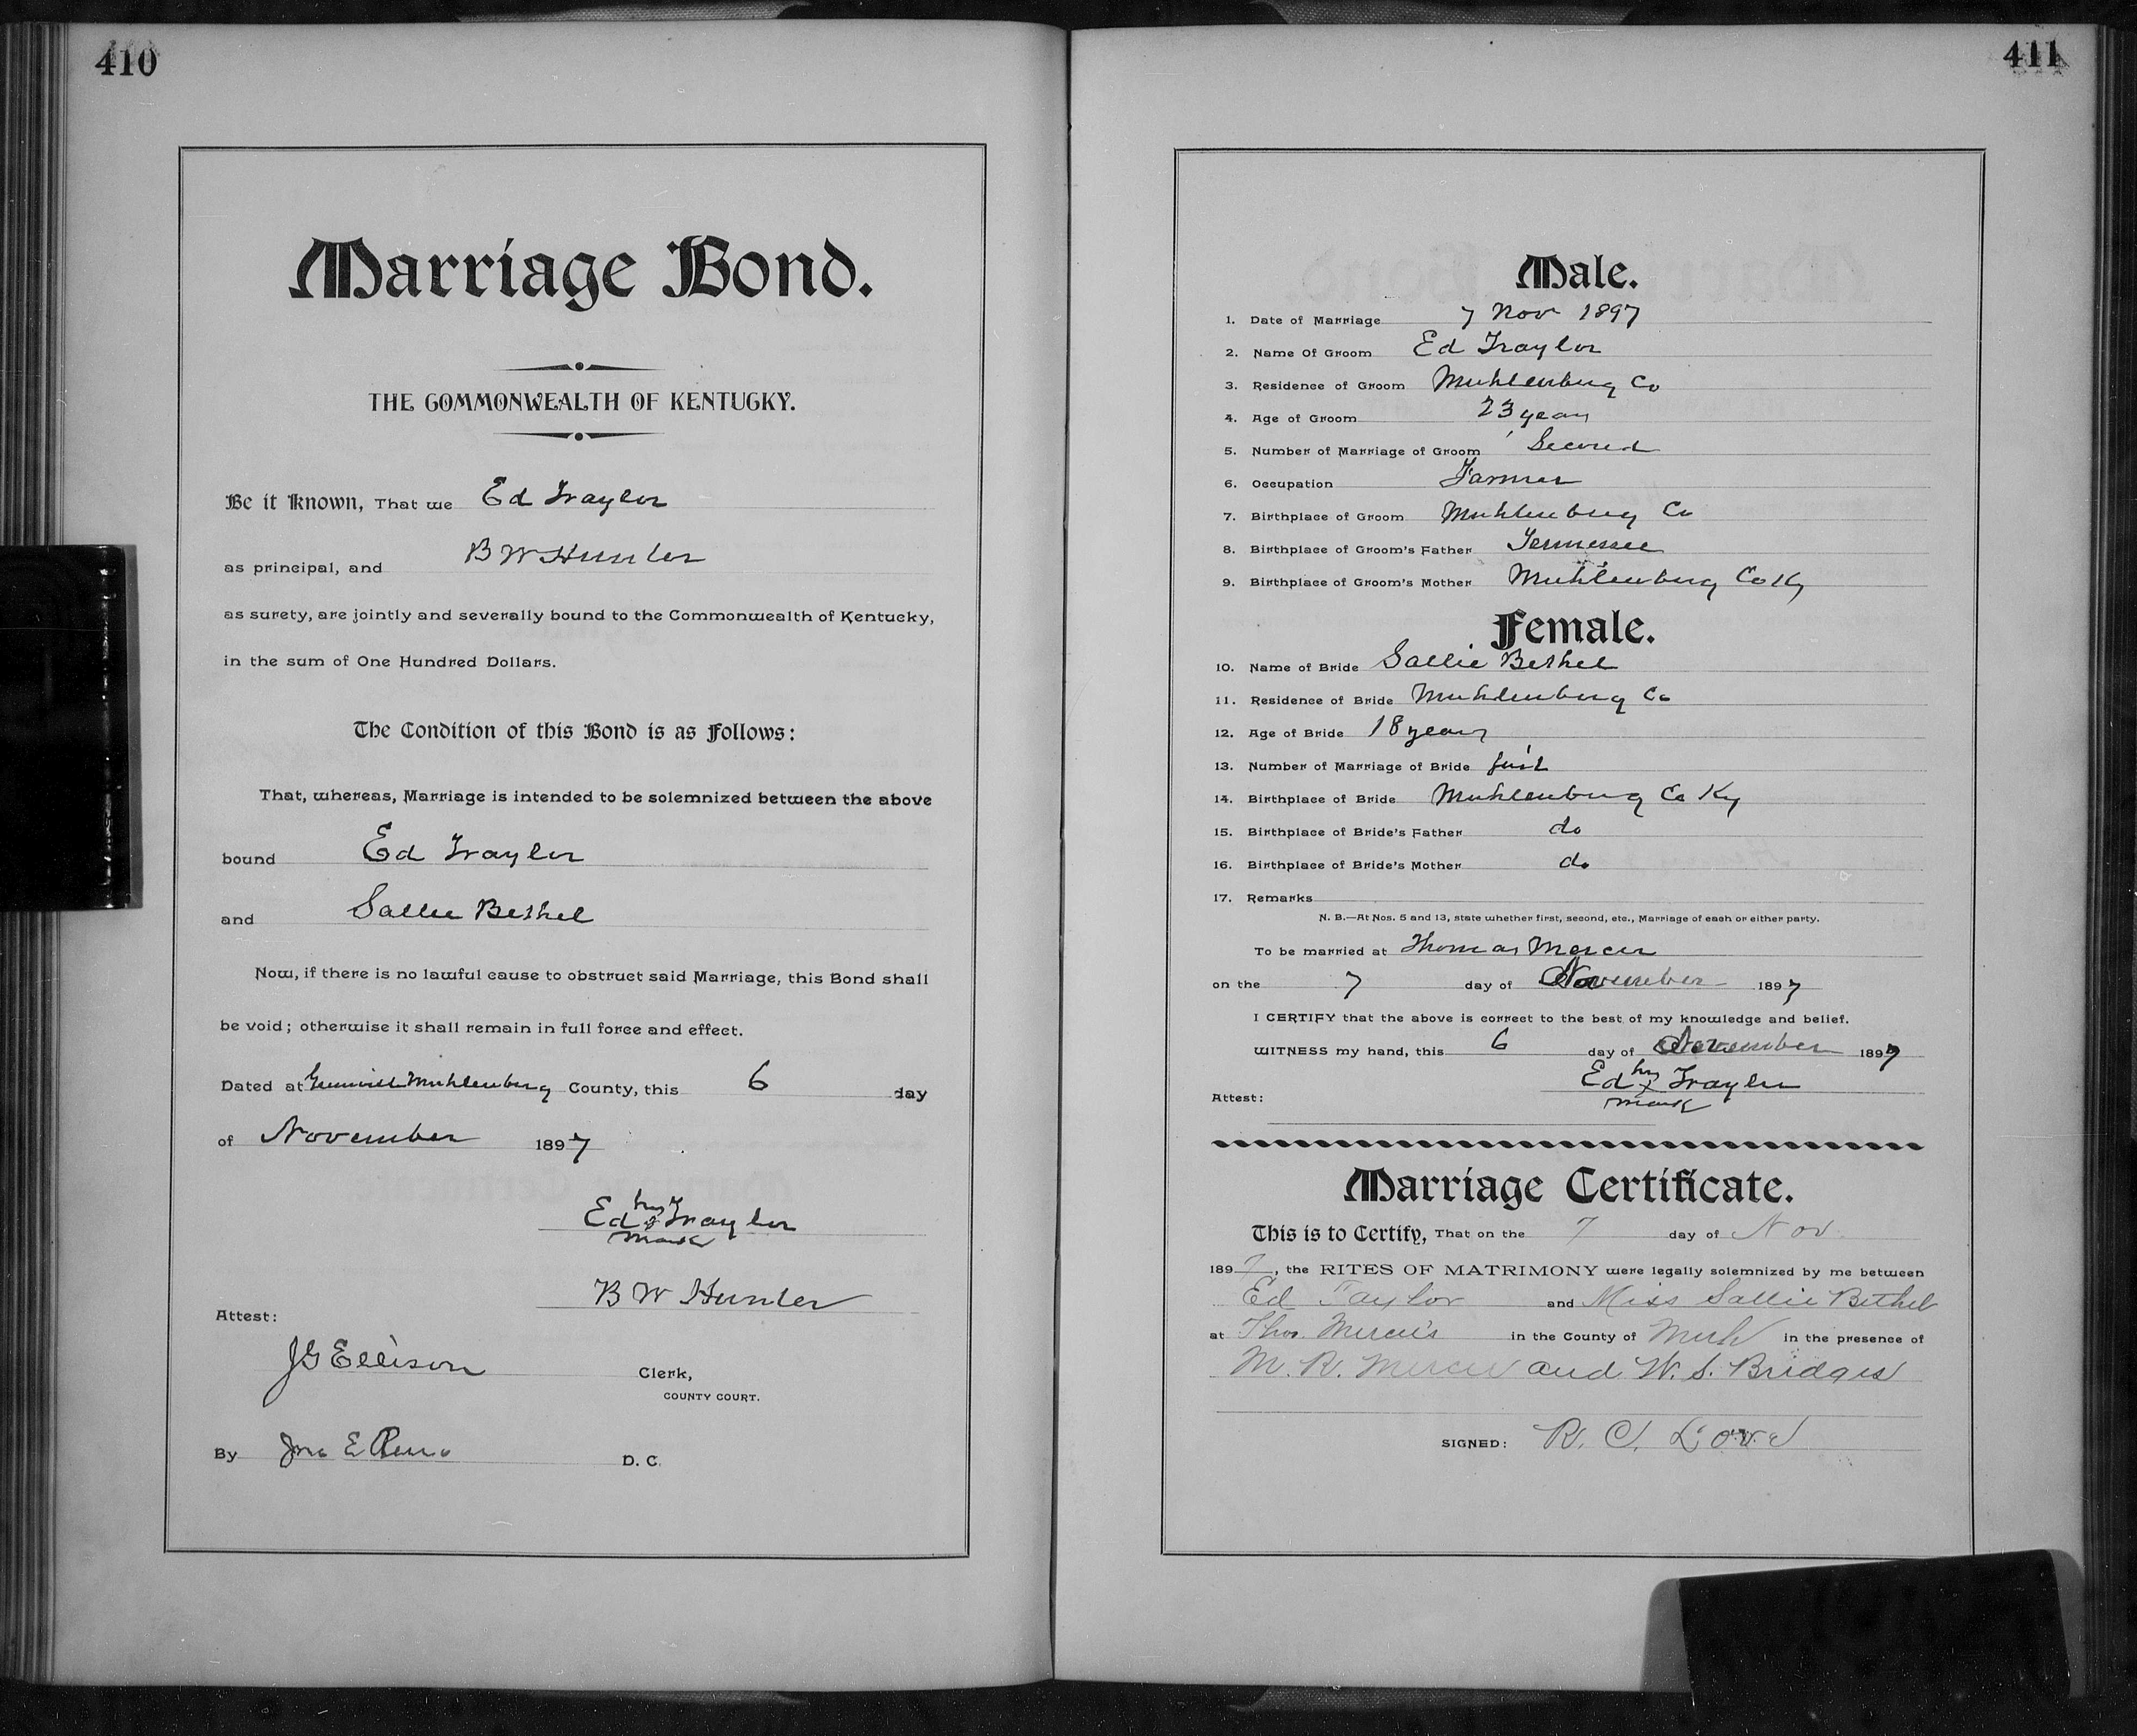 410
Marriage Bond.
THE COMMONWEALTH OF KENTUCKY.
Be it Known, That we Ed Traylor
as principal, and B W Hunter
as surety, are jointly and severally bound to the Commonwealth of Kentucky,
in the sum of One Hundred Dollars.
The Condition of this Bond is as Follows:
That, whereas, Marriage is intended to be solemnized between the above
bound Ed Traylor
and Sallie Bethel
Now, if there is no lawful cause to obstruct said Marriage, this Bond shall
be void; otherwise it shall remain in full force and effect.
Dated at Greenville Muhlenburg County, this 6 day
of November 1897
Ed his x mark Traylor
B W Hunter
Attest:
J G Ellison Clerk,
COUNTY COURT.
By Jno E Reno D. C.
411
Male.
1. Date of Marriage 7 Nov 1897
2. Name Of Groom Ed Traylor
3. Residence of Groom Muhlenburg Co
4. Age of Groom 23 years
5. Number of Marriage of Groom Second
6. Occupation Farmer
7. Birthplace of Groom Muhlenburg Co
8. Birthplace of Groom's Father Tennessee
9. Birthplace of Groom's Mother Muhlenburg Co Ky
Female.
10. Name of Bride Sallie Bethel
11. Residence of Bride Muhlenburg Co
12. Age of Bride 18 years
13. Number of Marriage of Bride first
14. Birthplace of Bride Muhlenburg Co Ky
15. Birthplace of Bride's Father do
16. Birthplace of Bride's Mother do
17. Remarks
N. B.—At Nos. 5 and 13, state whether first, second, etc., Marriage of each or either party.
To be married at Thomas Mercer
on the 7 day of November 1897
I CERTIFY that the above is correct to the best of my knowledge and belief.
WITNESS my hand, this 6 day of November 1897
Ed his x mark Traylor
Attest:
Marriage Certificate.
This is to Certify, That on the 7 day of Nov.
1897, the RITES OF MATRIMONY were legally solemnized by me between
Ed Taylor and Miss Sallie Bethel
at Thos. Mercer's in the County of Muh in the presence of
M. R. Mercer and W. S. Bridges
SIGNED: R. C. Love